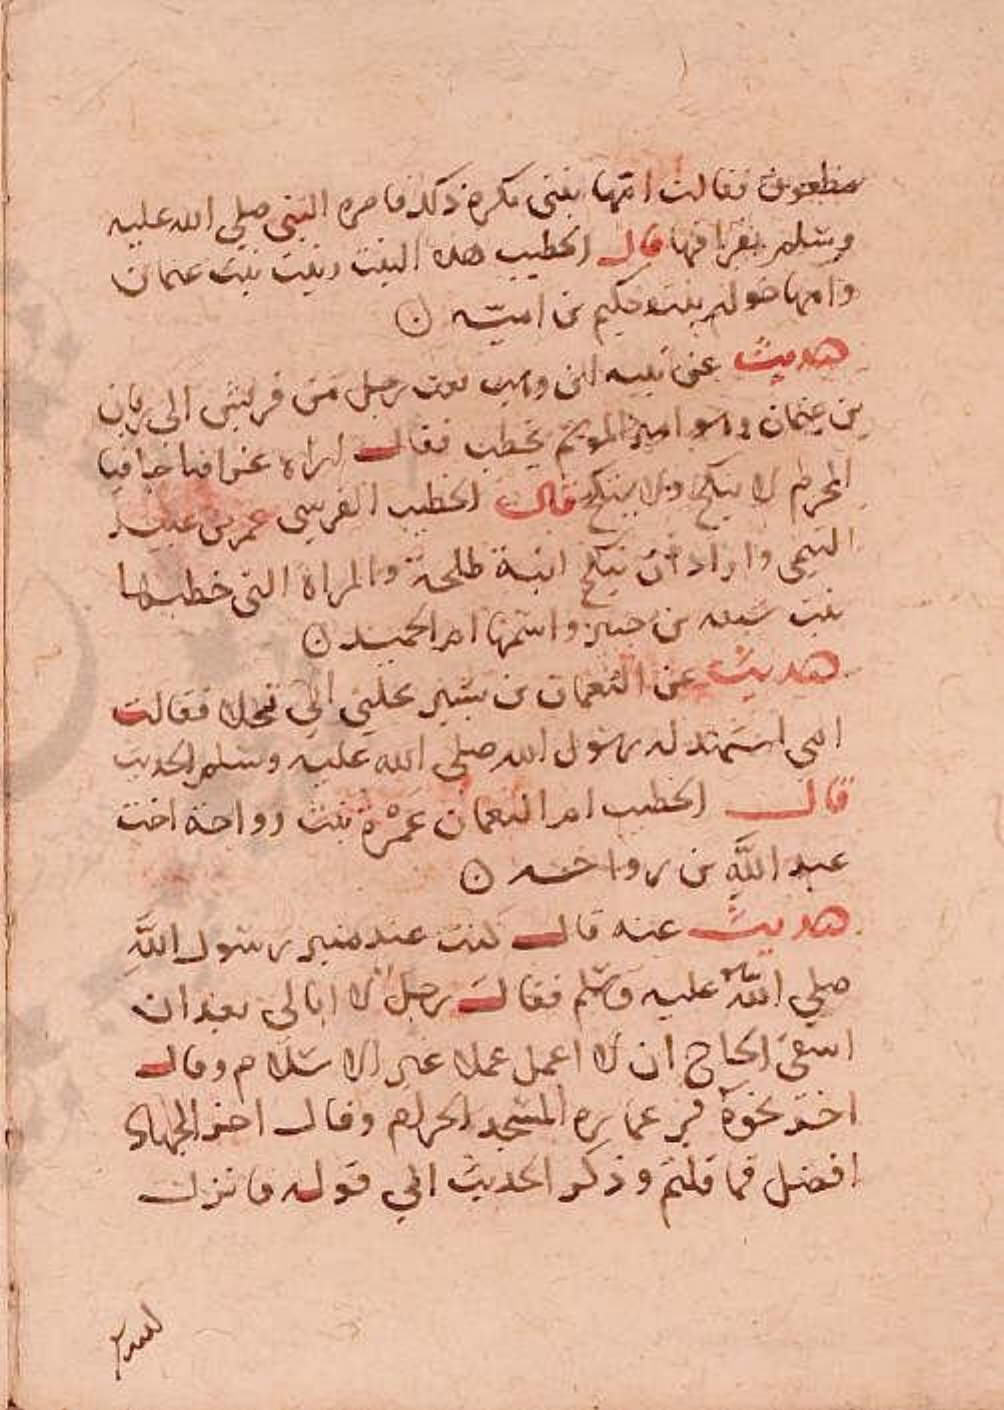 مظعون فقالت امها بنتى تكره ذلك فامره النبي صلي الله عليه
وسلم بفراقها قال الخطيب هذه البنت زينت بنت عثمان
وامها خوله بنت حكيم بن اميه
حديث عن نبيه ابن وهب بعث رجل من قريش الى ابان
بن عثمان وهو امير الموسم يخطب فقال اراه عراقيا جافيا
المحرم لا ينكح ولا ينكح قال الخطيب القرسي عمر بن عبيد
التيمى واراد ان ينكح ابنه طلحة والمراة التى خطبها
بنت شيبه بن جبير واسمها ام الحميد
حديث عن النعمان بن بشير نحلني ابي نحلا فقالت
امى اشهد له رسول الله صلي الله عليه وسلم الحديث
قال الخطيب ام النعمان عمرة بنت رواحة اخت
عبد الله بن رواحه
حديث عنه قال كنت عند منبر رسول الله
صلي الله عليه وسلم فقال رجل لا ابالى بعد ان
اسقى الحاج ان لا اعمل عملا غير الاسلام وقال
اخر نحوه في عماره المسجد الحرام وقال اخر الجهاد
افضل مما قلتم وذكر الحديث الي قوله فانزل